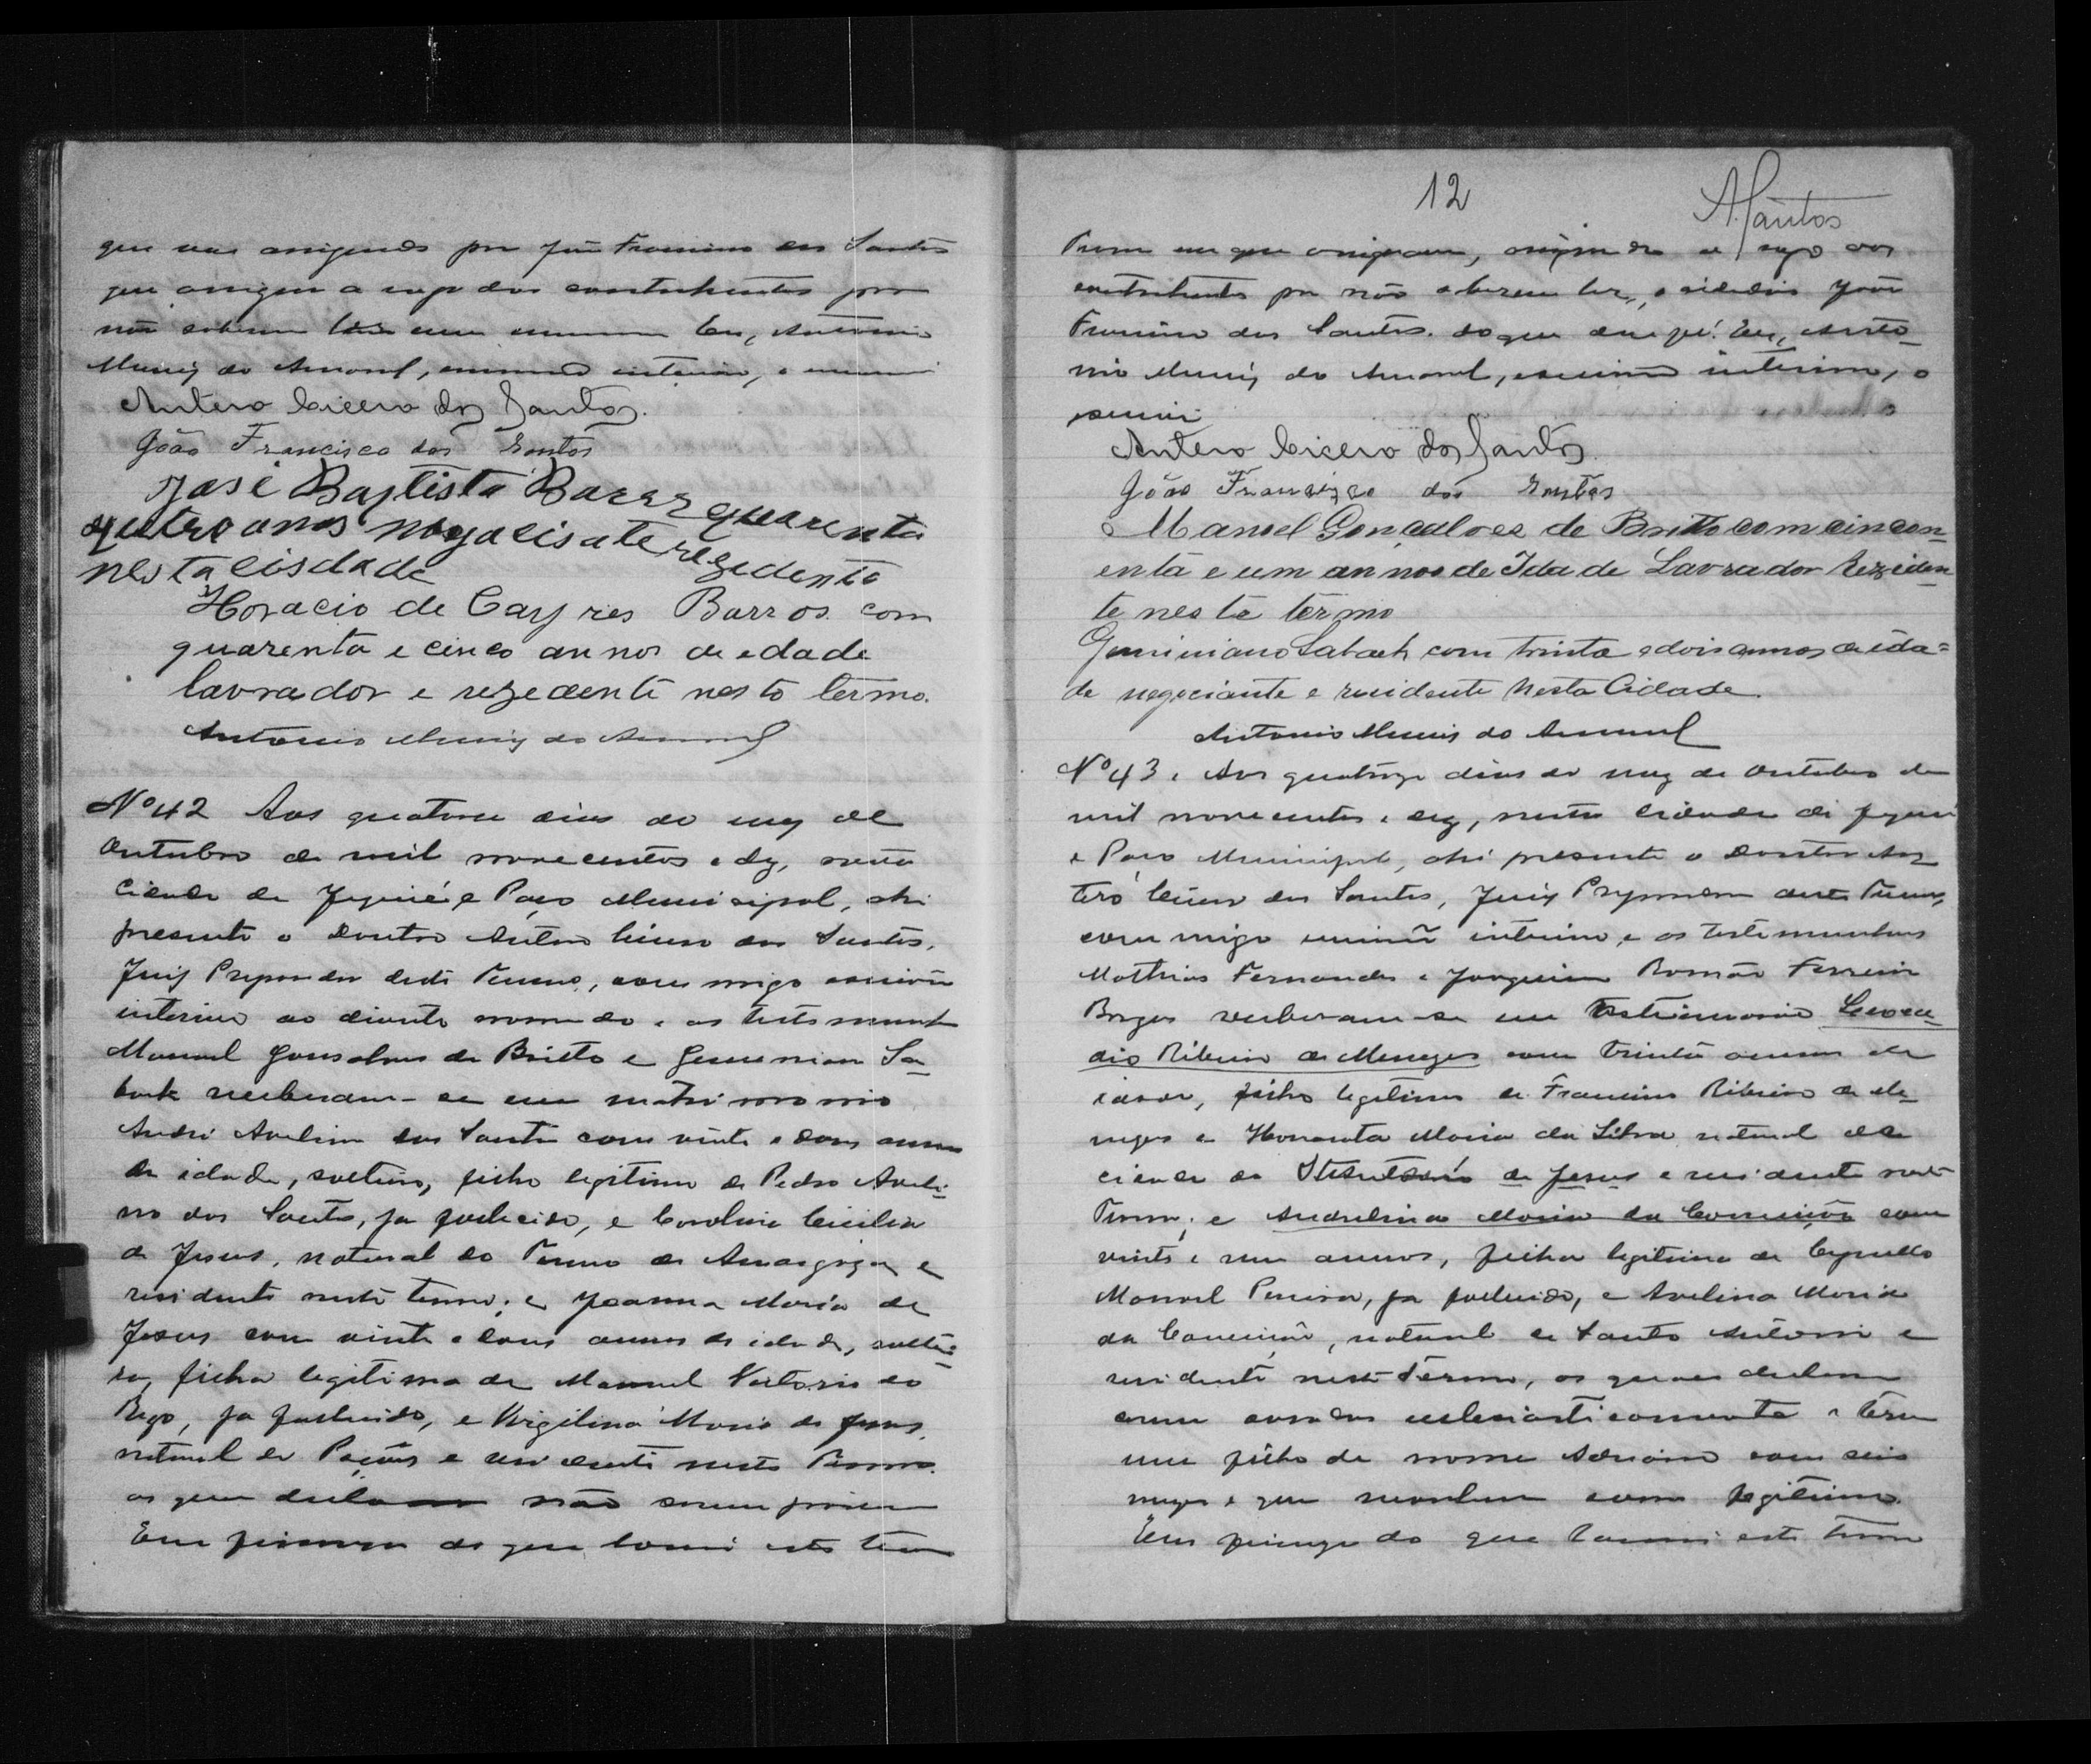 que vae assignado por João Francisco dos Santos
que assigna a rogo dos contrahentes por
não saberem ler nem escrever Eu, Antonio
Muniz do Amaral, escrivão interino, o escrevi
Antero Cicero dos Santos.
João Francisco dos Santos
José Baptista Barros quarenta
quatro anos negocisate rezedente
nesta cisdade
Horacio de Cayres Barros com
quarenta e cinco annos de edade
lavrador e rezedente nesto termo.
Antonio Muniz do Amaral
Nº 42 Aos quatorze dias do mez de
Outubro de mil novecentos e dez, nesta
Cidade de Jequié e Paço Municipal, ahi
presente o Doutor Antero Cicero dos Santos,
Juiz Preparador deste Termo, commigo escrivão
interino ao diante nomeado e as testemunhas
Manoel Gonsalves de Britto e Geminiano Sa-
back receberam-se em matrimonio
André Avelino dos Santos com vinte e dous annos
de idade, solteiro, filho legitimo de Pedro Aveli-
no dos Santos, ja fallecido, e Carolina Cicilia
de Jesus, natural do Termo de Amargoza e
residente neste termo; e Joanna Maria de
Jesus com vinte e dous annos de idade, soltei-
ra, filha legitima de Manoel Victorio do
Rego, ja fallecido, e Virgilina Maria de Jesus,
natural de Poções e residente neste Termo.
os quaes declaram não serem parentes
Em firmeza do que lavrei este termo
12
ASantos
Termo em que assignam, assignando a rogo dos
contrahentes por não saberem ler, o cidadão João
Francisco dos Santos. do que dou fé. Eu, Anto-
nio Muniz do Amaral, escrivão interino, o
escrevi
Antero Cicero dos Santos.
João Francisco dos Santos
Manoel Gonçalves de Britto com cincon-
enta e um annos de Idade Lavrador Reziden
te neste termo
Geminiano Saback com trinta e dois annos de ida-
de negociante e residente nesta Cidade.
Antonio Muniz do Amaral
Nº 43. Aos quatorze dias do mez de Outubro de
mil novecentos e dez, nesta cidade de Jequié
e Paço Municipal, ahi presente o Doutor An
tero Cicero dos Santos, Juiz Preparador deste Termo,
commigo escrivão interino, e as testemunhas
Mathias Fernandes e Joaquim Romão Ferreira
Borges receberam-se em matrimonio Leoca-
dio Ribeiro de Menezes com trinta annos de
idade, filho legitimo de Francisco Ribeiro de Me-
nezes e Honorata Maria da Silva natural da
cidade de de Jesus e residente neste
Termo; e Andrelina Maria da Conceição com
vinte e um annos, filha legitima de
Manoel Pereira, ja fallecido, e Avelina Maria
da Conceição, natural de Santo Antonio e
residente neste Termo, os quaes declaram
serem casados ecclesiasticamente e terem
um filho de nome Adriano com seis
mezes e que reconhecem como legitimo.
Em firmeza do que lavrei este termo